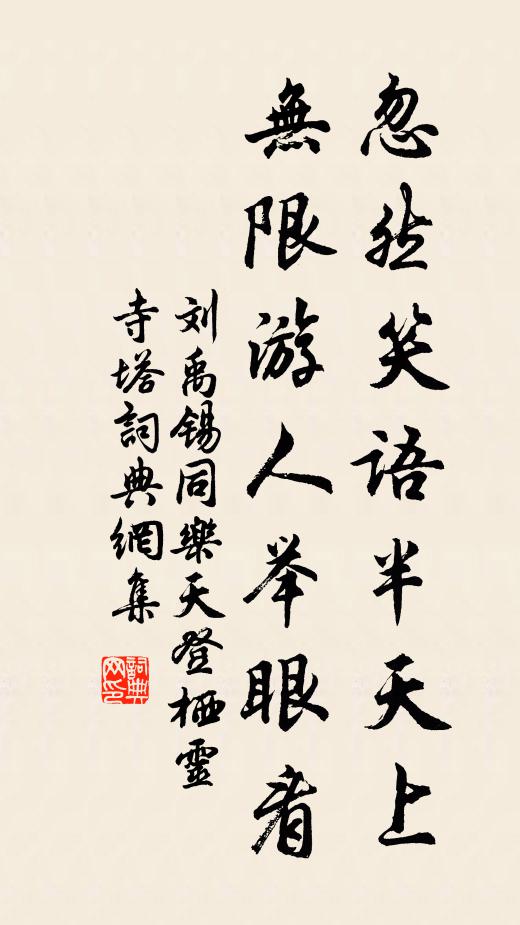 忽然笑语半天上
無限游人举眼看
刘禹锡同樂天登栖靈
寺塔詞典網集
詞典
网印